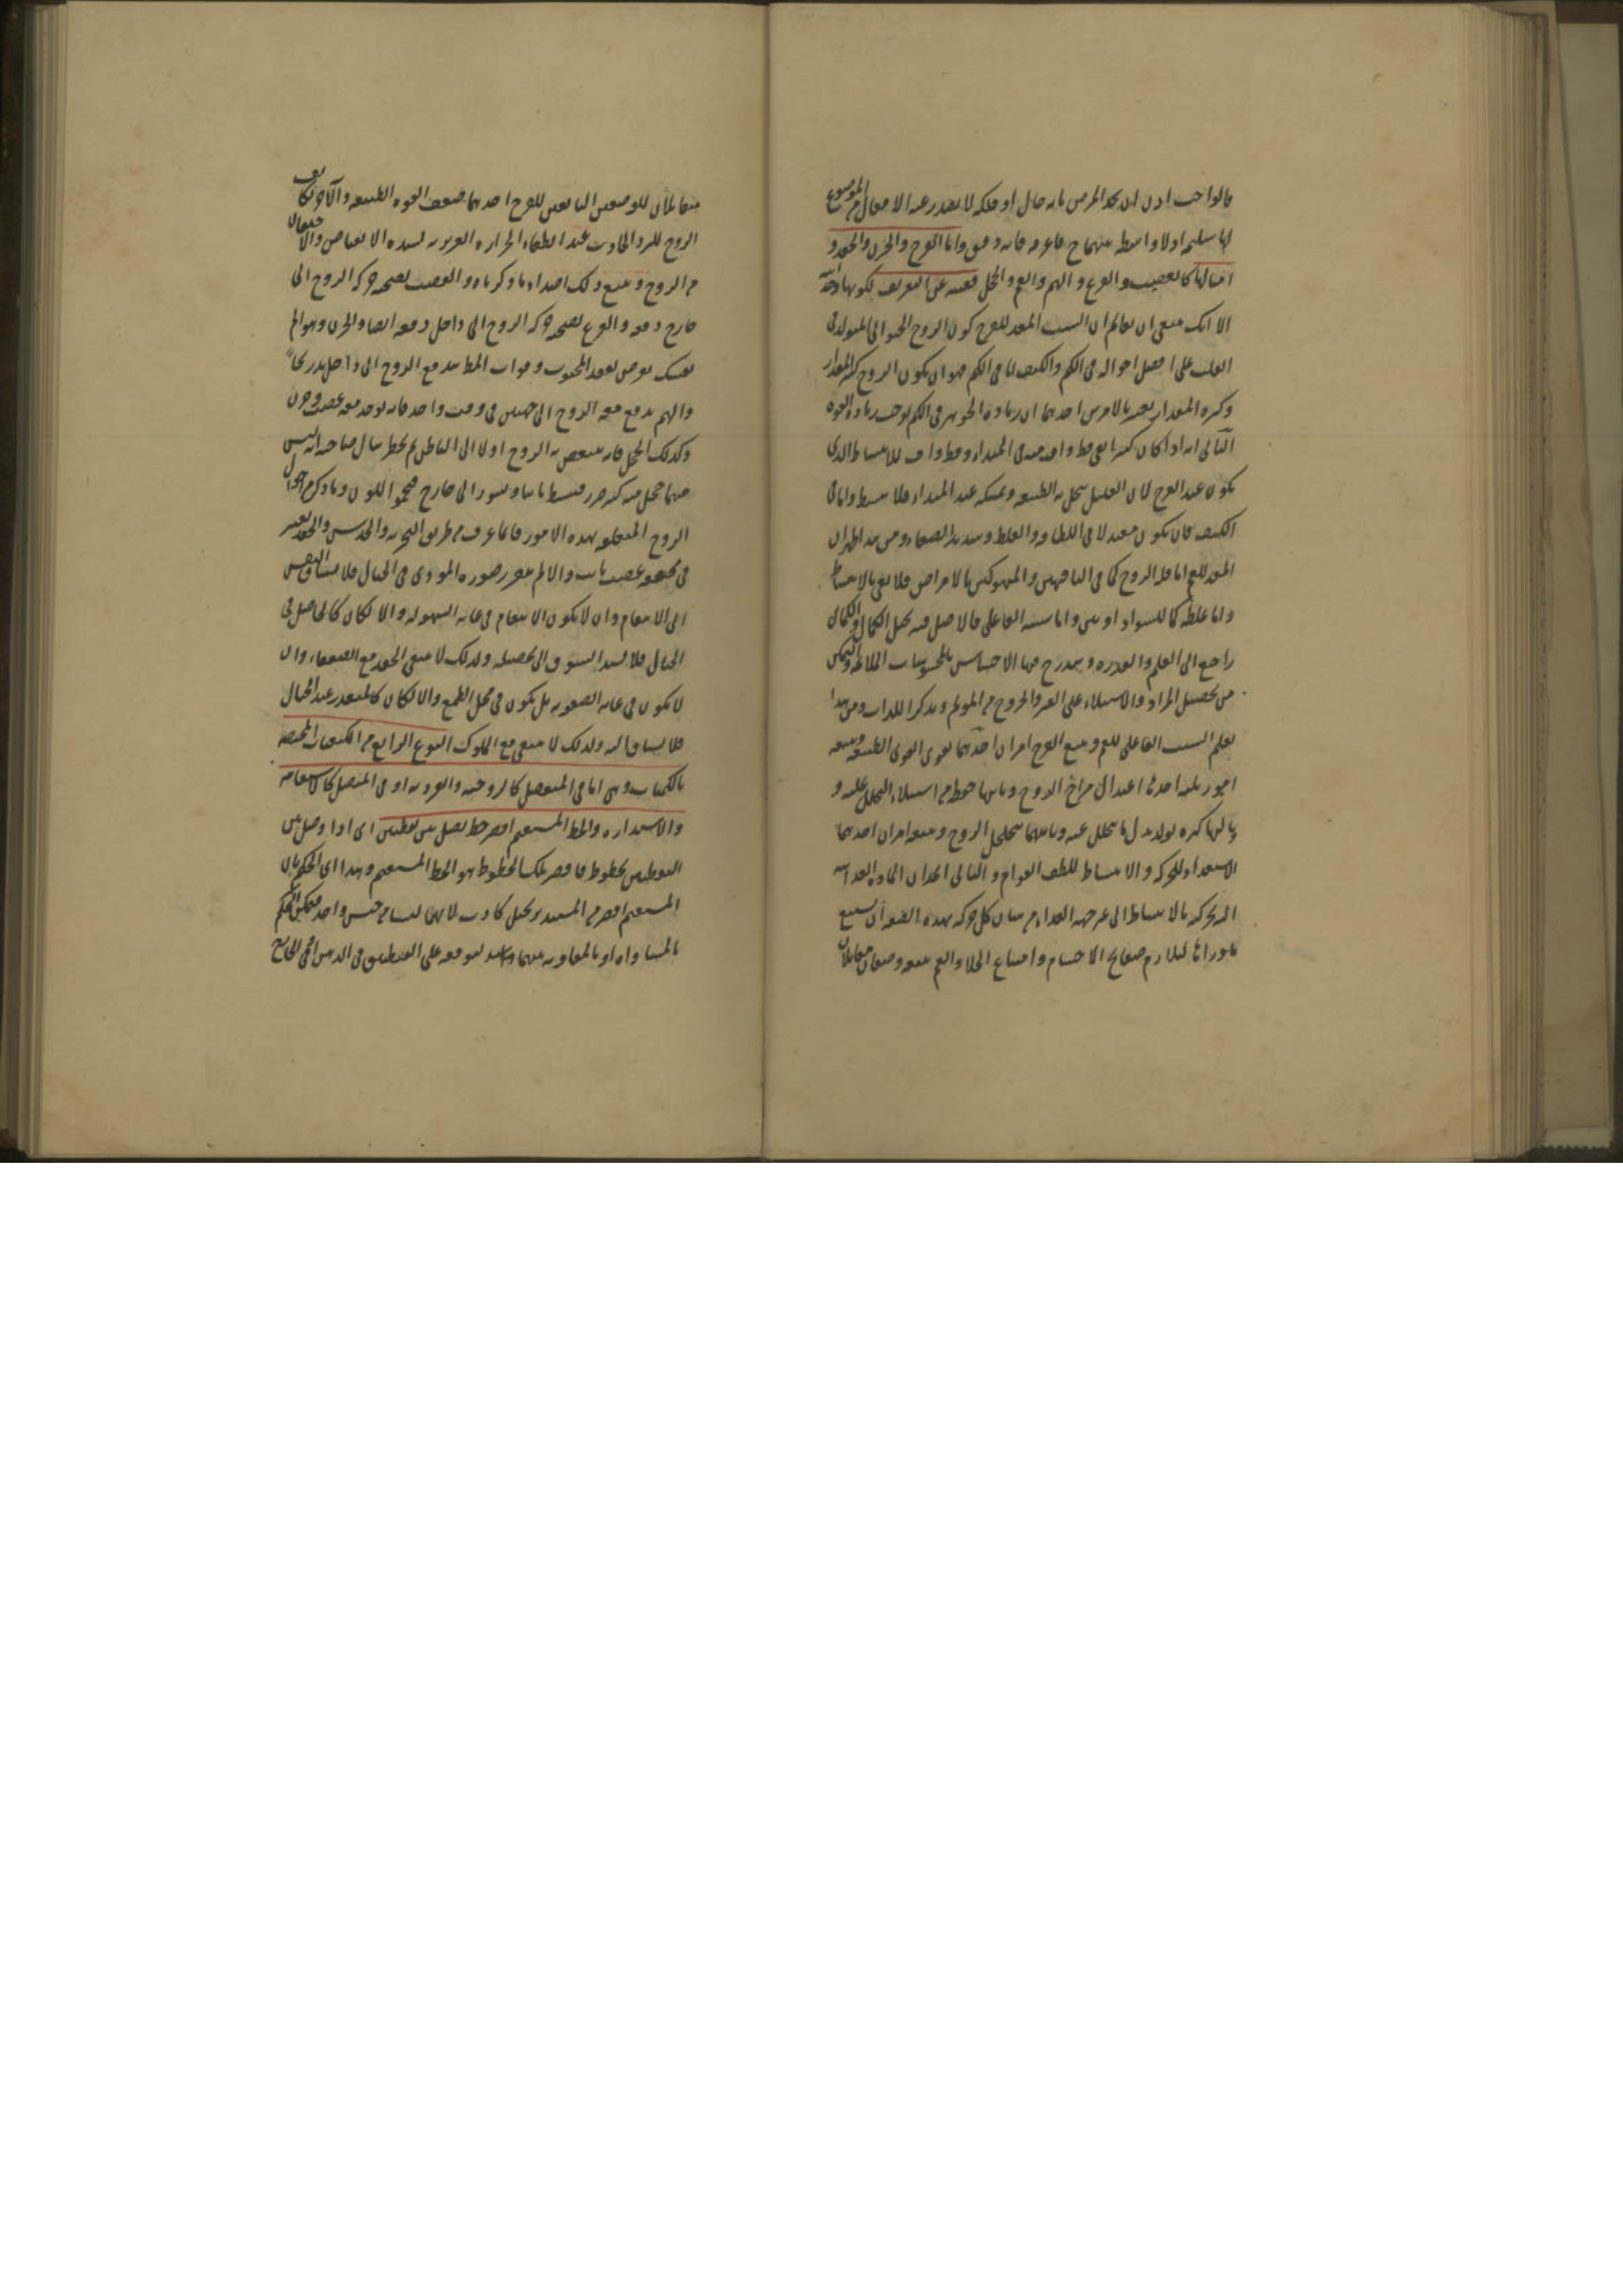 فالواجب اذن ان يحد المرض بانه حال او ملكة لا يصدر عنه الافعال من الموضوع
لها سليمة اولا واسطة بينهما ح فاعرفه فانه دقيق واما الفرح والحزن والحقد و
امثالها كالغضب والفزع والهم والغم والخجل فغنيه عن التعريف لكونها وجدانية
الا انك ينبغي ان تعلم ان السبب المعد للفرح كون الروح الحيواني المتولد في
القلب على افضل احواله في الكم والكيف اما في الكم فهو ان يكون الروح كثير المقدار
وكثرة المقدار يعد بالامرين احدهما ان زيادة الجوهر في الكم يوجب زيادة القوة
الثاني انه اذا كان كثيرا بقي قسط واف منه في المبداء وقسط واف للانبساط الذي
يكون عند الفرح لان القليل ينحل به الطبيعة وتمسكه عند المبداء فلا ينبسط واما في
الكيف فان يكون معتدلا في اللطافة والغلظ وشديد الصفاء ومن هذا ظهر ان
المعد للغم اما قلة الروح كما في الناقهين والمنهوكين بالامراض فلا يفي بالانبساط
واما غلظه كما للسوداويين واما سببه الفاعلي فالاصل فيه تخيل الكمال والكمال
راجع الى العلم والقدرة ويندرج فيها الاحساس بالمحسوسات الملائمة والتمكن
من تحصيل المراد والاستيلاء على الغير والخروج من المولم وتذكر اللذات ومن هذا
يعلم السبب الفاعلي للغم ويتبع الفرح امران احدهما تقوى القوى الطبيعية ويتبعه
امور ثلثه احدها اعتدال مزاج الروح وثانيها حفظه من استيلاء التحلل عليه و
ثالثها كثرة تولد بدل ما يتحلل عنه وثانيهما تخلخل الروح ويتبعه امران احدهما
الاستعداد للحركة والانبساط للطف القوام والثاني انجذاب المادة الغذائية
اليه لحركته بالانبساط الى غير جهة الغذاء من شان كل حركة بهذه الصفة ان يستتبع
ماورائها لتلازم صفايح الاجسام وامتناع الخلا والغم يتبعه وصفان مقابلان
متقابلان للوصفين التابعين للفرح احدهما ضعف القوة الطبيعية والآخر تكاثف
الروح للبرد الحادث عند انطفاء الحرارة الغريزية لشدة الانقباض والاحتقان
من الروح ويتبع ذلك اضداد ما ذكرناه والغضب يصحبه حركة الروح الى
خارج دفعة والفزع يصحبه حركة الروح الى داخل دفعة ايضا والحزن وهو الم
نفساني يعرض لفقد المحبوب وفوات المطلب يندفع الروح الى داخل تدريجا
والهم يندفع معه الروح الى جهتين في وقت واحد فانه يوجد معه غضب وحزن
وكذلك الخجل فانه ينقبض به الروح اولا الى الباطن ثم يخطر ببال صاحبه انه ليس
فيما خجل منه كثير ضرر فينبسط ثانيا ويثور الى خارج فيحمر اللون وما ذكر من احوال
الروح المتعلقة بهذه الامور فانما عرف من طريق التجربة والحدس والحقد يعتبر
في تحققه غضب ثابت والا لم يتقرر صورة الموذي في الخيال فلا يشتاق النفس
الى الانتقام وان لا يكون الانتقام في غاية السهولة والا لكان كالحاصل في
الخيال فلا يشتد الشوق الى تحصيله ولذلك لا يبقى الحقد مع الضعفاء وان
لا يكون في غاية الصعوبة بل يكون في محل الطمع والا لكان كالمتعذر عند الخيال
فلا يشتاق اليه ولذلك لا يبقى مع الملوك النوع الرابع من الكيفيات المختصة
بالكميات وهي اما في المنفصل كالزوجية والفردية او في المتصل كالاستقامة
والاستدارة والخط المستقيم اقصر خط يصل بين نقطتين اي اذا وصل بين
النقطتين بخطوط فاقصر تلك الخطوط هو الخط المستقيم وهذا اي الحكم بان
المستقيم اقصر من المستدير تخيل كاذب لانهما ليسا من جنس واحد فيمكن الحكم
بالمساواة او بالمفاوتة بينهما لتوقفه على التطبيق في الذهن او في الخارج